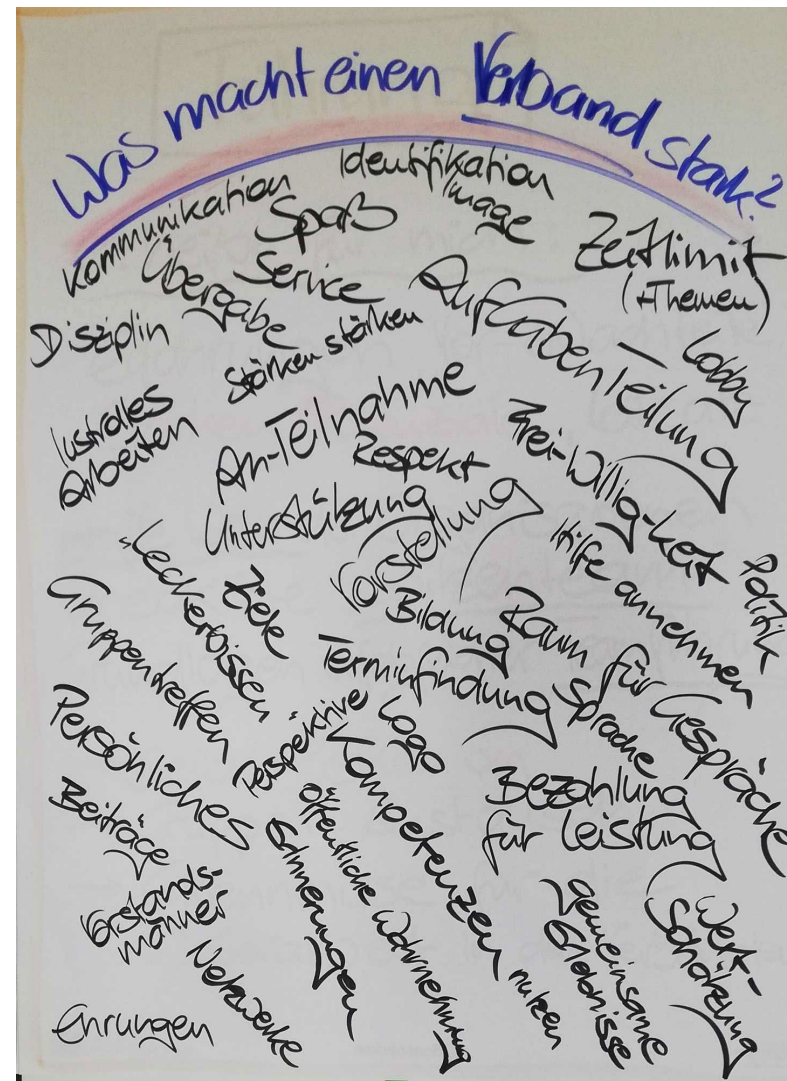 Was macht einen Verband stark?
Identifikation
Image
Kommunikation
Spaß
Zeitlimit
(+Themen)
Übergabe
Service
Aufgabenteilung
Disziplin
Stärken stärken
Lobby
lustvolles
Arbeiten
An-Teilnahme
Respekt
Frei-Willig-keit
Unterstützung
Vorstellung
Hilfe annehmen
Politik
"Leckerbissen
Ziele
Bildung
Raum für Gespräche
Gruppentreffen
Terminfindung
Sprache
Persönliches
Perspektive
Logo
Kompetenzen nutzen
Bezahlung
für Leistung
Beiträge
öffentliche Wahrnehmung
Erinnerungen
Vorstands-
männer
gemeinsame
Erlebnisse
Wert-
Schätzung
Netzwerke
Ehrungen